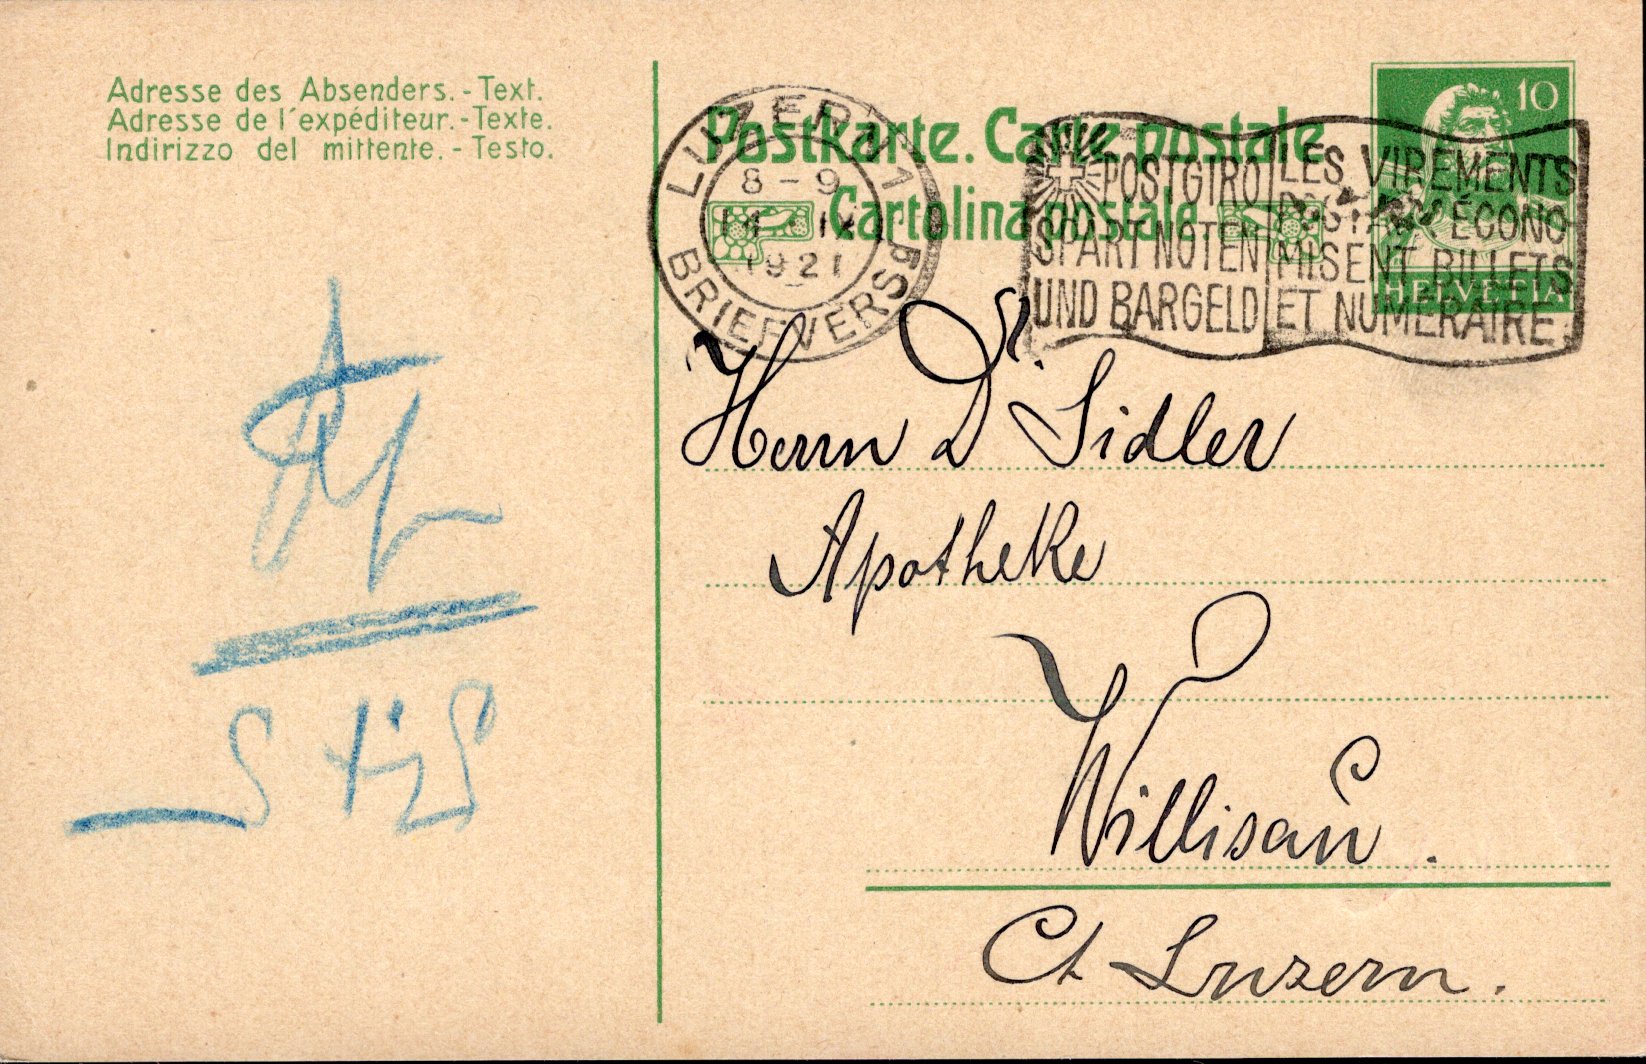 Adresse des Absenders. - Text.
Adresse de l'expéditeur. - Texte.
Indirizzo del mittente. - Testo.
Postkarte. Carte postale
Cartolina postale
LUZERN 1
8-9
14. IX
1921
BRIEFVERS
POSTGIRO
SPART NOTEN
UND BARGELD
LES VIREMENTS
POSTAUX ÉCONO-
MISENT BILLETS
ET NUMÉRAIRE
10
HELVETIA
Herrn Dr. Sidler
Apotheke
Willisau.
Ct Luzern.